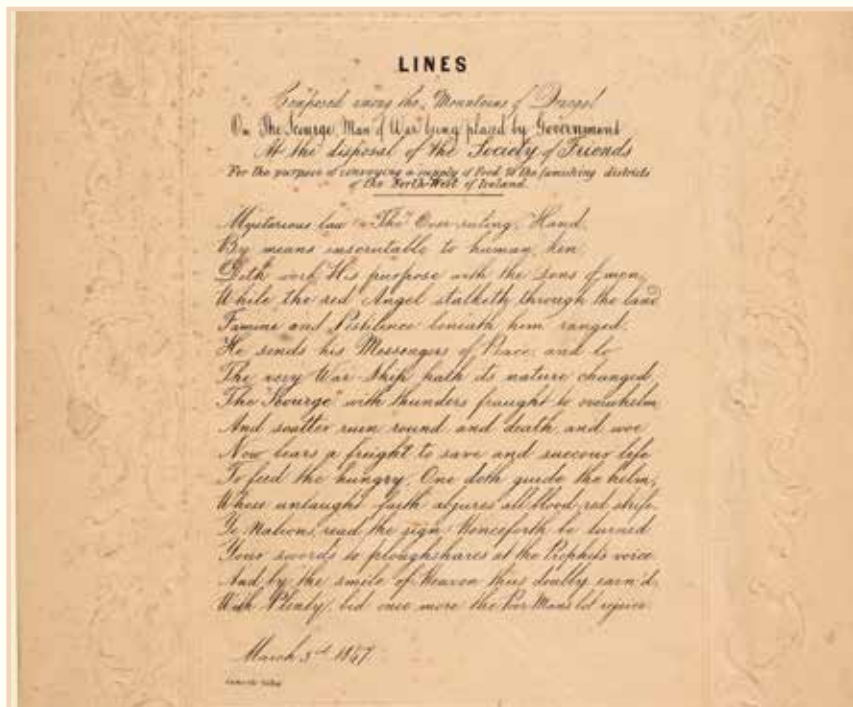 LINES
Composed among the Mountains of Donegal
On "The Scourge" Man of War being placed by Government
At the disposal of the Society of Friends
For the purpose of conveying a supply of Food to the famishing districts
of the North-West of Ireland.
Mysterious law The Over-ruling Hand
By means inscrutable to human ken
Doth work His purpose with the sons of men,
While the red Angel stalketh through the land
Famine and Pestilence beneath him ranged.
He sends his Messengers of Peace, and lo
The very War Ship hath its nature changed,
The "Scourge" with thunders fraught to overwhelm
And scatter ruin round and death, and woe
Now bears a freight to save and succour life
To feed the hungry, One doth guide the helm,
Whose untaught faith abjures all blood-red strife.
Ye Nations, read the sign Henceforth be turned
Your swords to ploughshares at the Prophets voice
And by the smile of Heaven thus doubly earn'd,
With Plenty, bid once more the Poor Mans lot rejoice.
March 3rd 1847